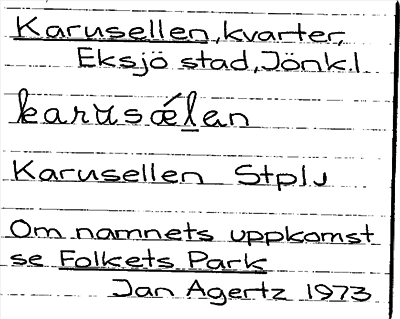 Karusellen, kvarter,
Eksjö stad, Jönk.l.
karusǽlan
Karusellen Stplu
Om namnets uppkomst
se Folkets Park
Jan Agertz 1973